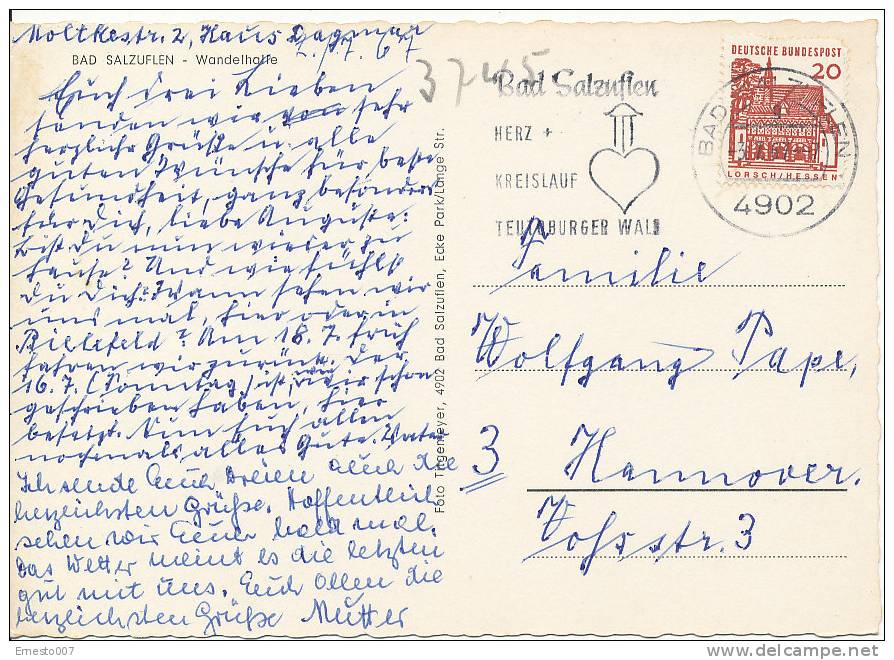 Moltkestr. 2, Haus Dagmar
2. 7. 67
BAD SALZUFLEN - Wandelhalle
Euch drei Lieben
senden wir sehr
herzliche Grüße u. alle
guten Wünsche für beste
Gesundheit, ganz besonders
für Dich, liebe Auguste:
Bist Du nun wieder zu
Hause? Und wie fühlst
Du Dich? Wann sehen wir
uns mal, hier oder in
Bielefeld? Am 18. 7. früh
fahren wir zurück. Der
16. 7. (Sonntag) ist, wie wir schon
geschrieben haben, hier
besetzt. Nun Euch allen
nochmals alles Gute. Vater
Ich sende Euch Dreien auch die
herzlichsten Grüße. Hoffentlich
sehen wir Euch bald mal.
Das Wetter meint es die letzten
gut mit uns. Euch Allen die
herzlichsten Grüße Mutter
Foto Tingemeyer, 4902 Bad Salzuflen, Ecke Park/Lange Str.
3745
Bad Salzuflen
HERZ +
KREISLAUF
TEUTOBURGER WALD
DEUTSCHE BUNDESPOST
20
LORSCH/HESSEN
BAD SALZUFLEN
4902
Familie
Wolfgang Pape,
3 Hannover.
Vossstr. 3
Ernesto007
delcampe.net